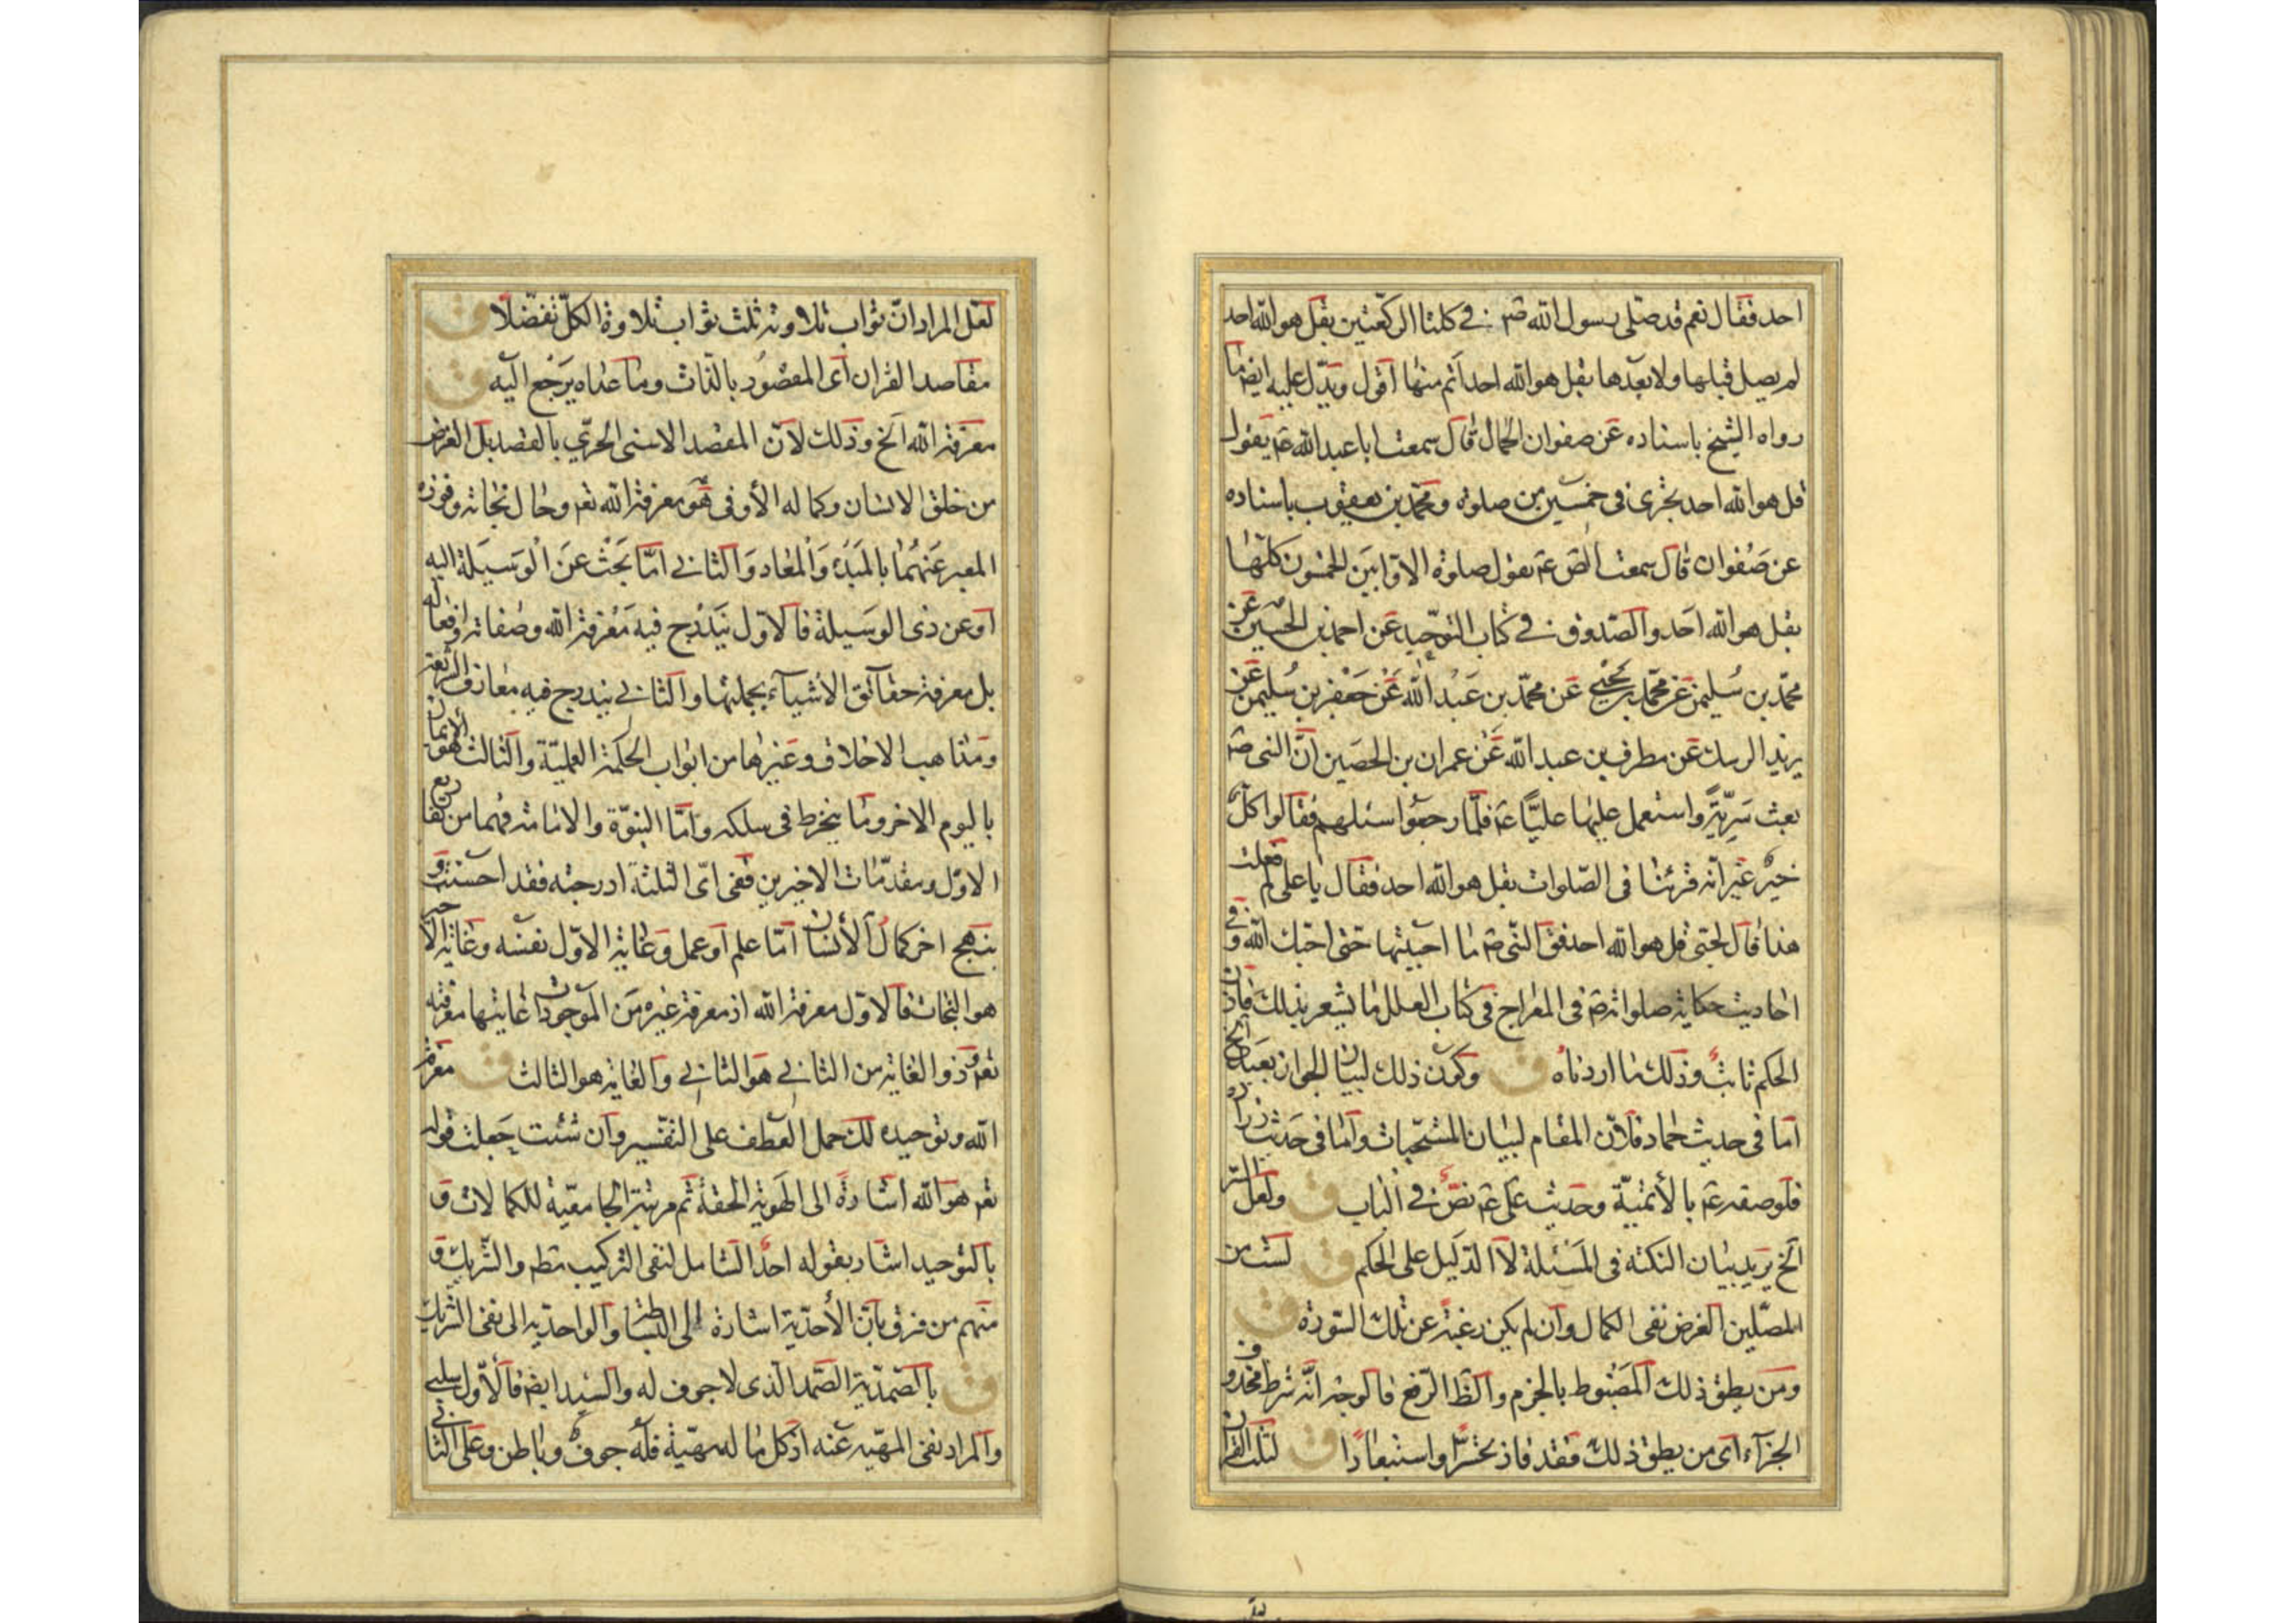 احد فقال نعم قد صلى رسول الله صم في كلتا الركعتين بقل هو الله احد
لم يصل قبلها ولا بعدها بقل هو الله احد اتم منها اقول ويدل عليه ايضا ما
رواه الشيخ باسناده عن صفوان الجمال قال سمعت ابا عبد الله عم يقول
قل هو الله احد تجزى فى خمسين صلوة ومحمد بن يعقوب باسناده
عن صفوان قال سمعت عم يقول صلوة الاوابين الخمسون كلها
بقل هو الله احد والصدوق في كتاب التوحيد عن احمد بن الحسين عن
محمد بن سليمن عن محمد بن يحيى عن محمد بن عبد الله عن جعفر بن سليمن عن
يزيد الرسك عن مطرف بن عبد الله عن عمران بن الحصين ان النبى صم
بعث سرية واستعمل عليها عليا عم فلما رجعوا سئلهم فقالوا كل
خير غير انه قرء بنا فى الصلوات بقل هو الله احد فقال يا على لم فعلت
هذا قال لحبى قل هو الله احد فق النبى صم ما احببتها حتى احبك الله وفي
احاديث حكاية صلواته صم فى المعراج فى كتاب العلل ما يشعر بذلك فاذن
الحكم ثابت وذلك ما اردناه ق وكون ذلك لبيان الجواز بعيد الخ
اما فى حديث حماد فلان المقام لبيان المستحبات واما فى حديث زرارة
فلوصفه عم بالأتمية وحديث على عم نص في الباب ق ولعل السر
الخ يريد بيان النكتة فى المسئلة لا الدليل على الحكم ق لست من
المصلين الغرض نفى الكمال وان لم يكن رغبة عن تلك السورة ق
ومن يطق ذلك المضبوط بالجزم والظ الرفع فالوجه انه شرط محذوف
الجزآء اى من يطق ذلك فقد فاز تحسرا واستبعادا ق لثلث القران
لعل المراد ان ثواب تلاوته ثلث ثواب تلاوة الكل تفضلا ق
مقاصد القران اى المقصود بالذات وما عداه يرجع اليه ق
معرفة الله الخ وذلك لان المقصد الاسنى الحرى بالقصد بل الغرض
من خلق الانسان وكماله الأوفى هو معرفة الله تعم وحال نجاته وفوزه
المعبر عنهما بالمبدء والمعاد والثاني اما بحث عن الوسيلة اليه
او عن ذى الوسيلة فالاول يندرج فيه معرفة الله وصفاته وافعاله
بل معرفة حقآئق الاشيآء بجملتها والثاني يندرج فيه معارف الشريعة
ومذاهب الاخلاق وغيرها من ابواب الحكمة العملية والثالث هو الايمان
باليوم الاخر وما ينخرط فى سلكه واما النبوة والامامة فهما من تفاريع
الاول ومقدمات الاخيرين ففى اى الثلثة ادرجته فقد احسنت و
بنهج اخر كمال الأنسان اما علم او عمل وغاية الاول نفسه وغاية الاخير
هو النجات فالاول معرفة الله اذ معرفة غيره من الموجودات غايتها معرفته
تعم وذو الغاية من الثاني هو الثاني والغاية هو الثالث ق معرفة
الله وتوحيده لك حمل العطف على التفسير وان شئت جعلت قوله
تعم هو الله اشارة الى الهوية الحقة ثم مرتبة الجامعية للكمالات و
بالتوحيد اشار بقوله احد الشامل لنفى التركيب مط والشريك و
منهم من فرق بان الأحدية اشارة الى البساطة والواحدية الى نفى الشريك
ق بالصمدية الصمد الذى لا جوف له والسيد ايضا فالأول سلبى
والمراد نفى المهية عنه اذ كل ما له مهية فله جوف وباطن وعلى الثانى